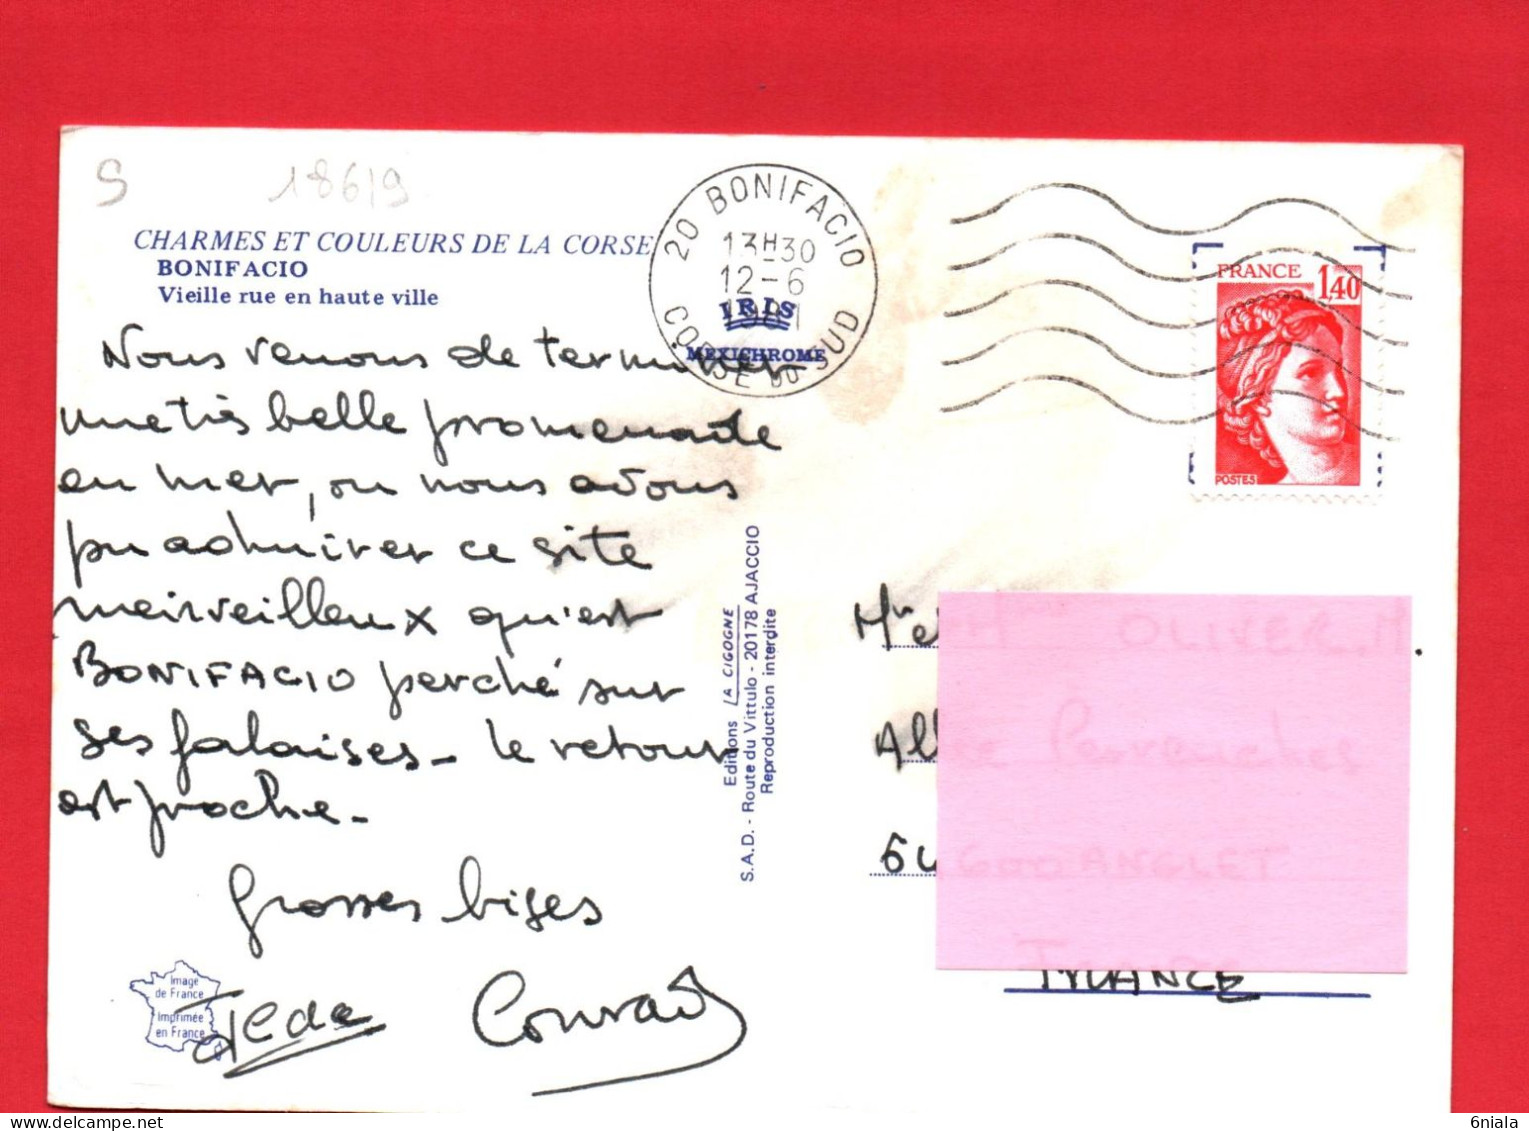 S 18619
CHARMES ET COULEURS DE LA CORSE
BONIFACIO
Vieille rue en haute ville
20 BONIFACIO
13H30
12-6
1981
CORSE DU SUD
IRIS
MEXICHROME
FRANCE
1,40
POSTES
Nous venons de terminer
une très belle promenade
en mer, ou nous avons
pu admirer ce site
meirveilleux qu'est
BONIFACIO perché sur
ses falaises_ le retour
est proche_
Grosses bises
Conrad
Image
de France
Imprimée
en France
Editions LA CIGOGNE
S.A.D. - Route du Vittulo - 20178 AJACCIO
Reproduction interdite
OLIVER. M.
Allée Pervenches
64600 ANGLET
FRANCE
6niala